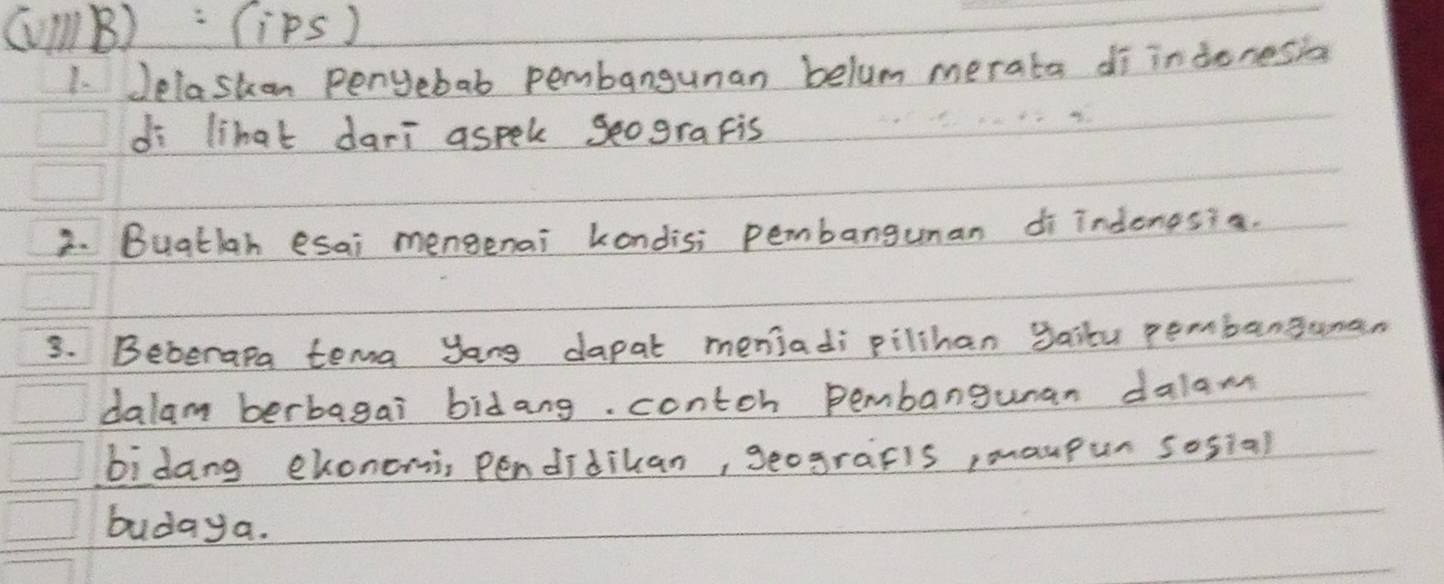 (VIII B) : (iPS)
1. Jelaskan Penyebab Pembangunan belum merata di indonesia
di lihat dari aspek geografis
2. Buatlah esai mengenai kondisi Pembangunan di indonesia.
3. Beberapa tema yang dapat menjadi pilihan yaitu pembangunan
dalam berbagai bidang. contoh Pembangunan dalam
bidang ekonomi, Pendidikan, geografis, maupun sosial
budaya.